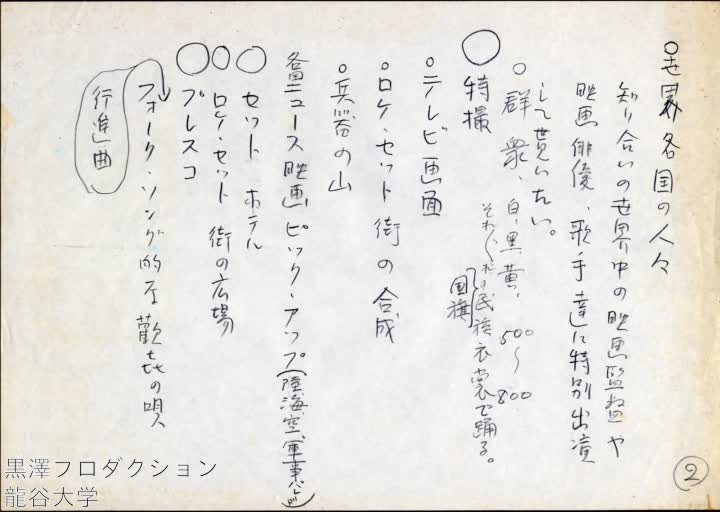 ○世界各国の人々
知り合いの世界中の映画監督や
映画俳優、歌手達に特別出演
して貰いたい。
○群衆、白、黒、黄、500〜800
それぞれの民族衣裳で踊る。
国旗
○特撮
○テレビ画面
○ロケ・セット街の合成
○兵器の山
各国ニュース映画ピック・アップ(陸海空、軍事パレード)
○セット ホテル
○ロケ・セット 街の広場
○プレスコ
フォーク・ソング的な歓喜の唄
行進曲
2
黒澤プロダクション
龍谷大学